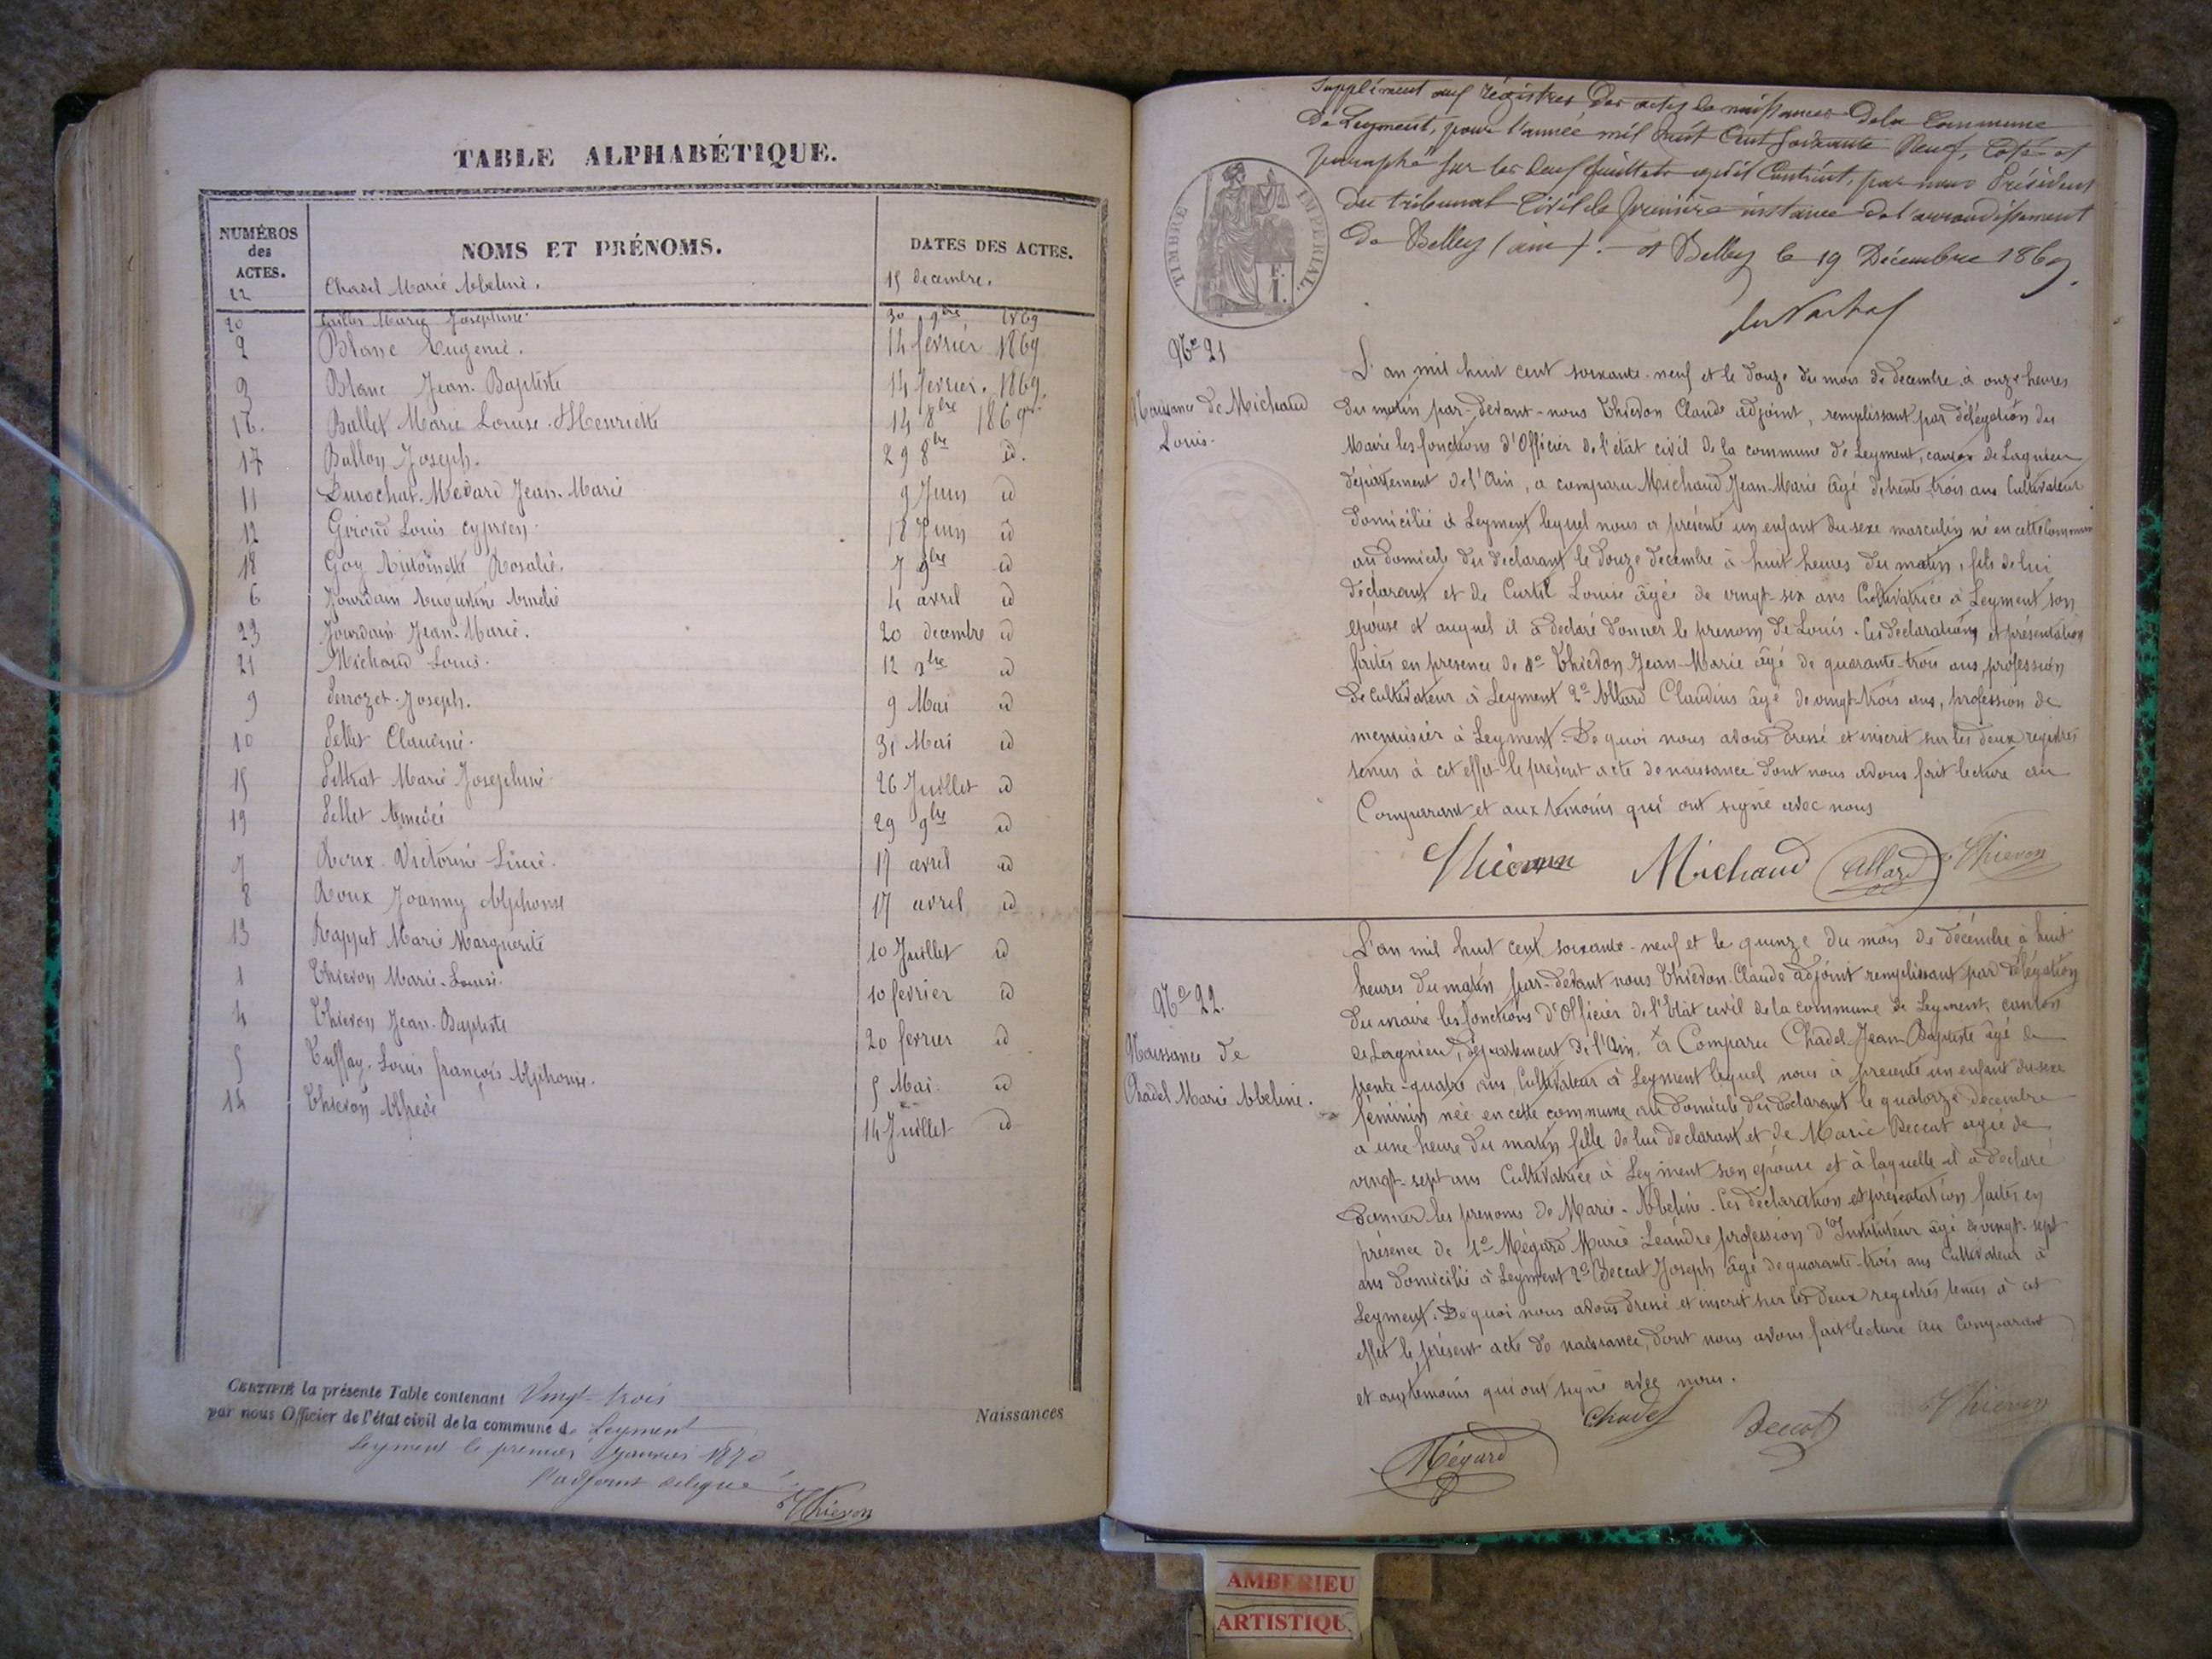 TABLE ALPHABÉTIQUE.
NUMÉROS des ACTES. NOMS ET PRÉNOMS. DATES DES ACTES.
22 Chadel Marie Abeline. 15 decembre.
20 Marie Josephine 30 9bre 1869
2 Blanc Eugenie. 14 fevrier 1869
3 Blanc Jean-Baptiste 14 fevrier. 1869.
16. Ballet Marie Louise Henriette 14 8bre 1869
17 Ballon Joseph. 29 8bre id.
11 Durochat-Medard Jean-Marie 9 Juin id
12 Giroud Louis cyprien 18 Juin id
18 Goy Antoinette Rosalie. 7 9bre id
6 Jourdain Augustine Amelie 4 avril id
23 Jourdain Jean-Marie. 20 decembre id
21 Michaud Louis. 12 xbre id
9 Perrozet-Joseph. 9 Mai id
10 Pellet Claudine. 31 Mai id
15 Marie Josephine 26 Juillet id
19 Pellet Amedée 29 9bre id
7 Roux Victorine 17 avril id
8 Roux Joanny Alphonse 17 avril id
13 Rappet Marie Marguerite 10 Juillet id
1 Thievon Marie-Louise. 10 fevrier id
4 Thievon Jean-Baptiste 20 fevrier id
5 Louis françois Alphonse. 5 Mai id
14 Thievon Alfred 14 Juillet id
CERTIFIÉ la présente Table contenant Vingt-trois Naissances
par nous Officier de l'état civil de la commune de Leyment
Leyment le premier Janvier 1870
l'adjoint delegué
Thievon
Supplément aux régistres des actes de naissances de la Commune
de Leyment, pour l'année mil huit Cent Soixante Neuf, Coté et
paraphé sur les deux feuillets qu'il Contient, par nous Président
du tribunal Civil de première instance de l'arrondissement
de Belley (ain). A Belley le 19 Décembre 1869.
TIMBRE IMPÉRIAL.
No 21
Naissance de Michaud
Louis.
L'an mil huit cent soixante-neuf et le douze du mois de decembre à onze heures
du matin par-devant-nous Thievon Claude adjoint, remplissant par délégation du
Maire les fonctions d'Officier de l'état civil de la commune de Leyment, canton de Lagnieu
département de l'Ain, a comparu Michaud Jean-Marie âgé de trente-trois ans Cultivateur
domicilié à Leyment lequel nous a présenté un enfant du sexe masculin né en cette Commune
au domicile du declarant le douze decembre à huit heures du matin, fils de lui
déclarant et de Curtil Louise âgée de vingt-six ans Cultivatrice à Leyment son
épouse et auquel il a declaré donner le prenom de Louis. Ces declarations et présentation
faites en presence de 1o Thievon Jean-Marie âgé de quarante-trois ans, profession
de cultivateur à Leyment 2o Allard Claudius âgé de vingt-trois ans, profession de
menuisier à Leyment. De quoi nous avons dressé et inscrit sur les deux registres
tenus à cet effet le présent acte de naissance dont nous avons fait lecture au
Comparant et aux témoins qui ont signé avec nous
Thievon Michaud Allard Thievon
No 22.
Naissance de
Chadel Marie Abeline.
L'an mil huit cent soixante-neuf et le quinze du mois de décembre à huit
heures du matin par-devant nous Thievon Claude adjoint remplissant par délégation
du maire les fonctions d'Officier de l'Etat civil de la commune de Leyment, canton
de Lagnieu, département de l'Ain, a Comparu Chadel Jean Baptiste âgé de
trente-quatre ans, Cultivateur à Leyment lequel nous a presenté un enfant du sexe
féminin née en cette commune au domicile du declarant le quatorze decembre
a une heure du matin fille de lui declarant et de Marie Beccat agée de
vingt-sept ans Cultivatrice à Leyment son épouse et à laquelle il a declaré
donner les prenoms de Marie-Abeline. Ces déclaration et présentation faites en
présence de 1o Mégard Marie Léandre profession d'Instituteur âgé de vingt-sept
ans domicilié à Leyment 2o Beccat Joseph âgé de quarante-trois ans Cultivateur à
Leyment. De quoi nous avons dressé et inscrit sur les deux registres tenus à cet
effet le présent acte de naissance, dont nous avons fait lecture au Comparant
et aux témoins qui ont signé avec nous.
Chadel Beccat Thievon
Mégard
AMBERIEU
ARTISTIQU